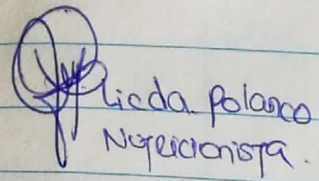 Licda Polanco
Nutricionista.